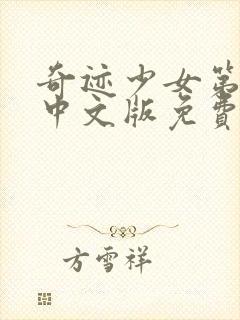 奇迹少女第
中文版免费
方雪祥